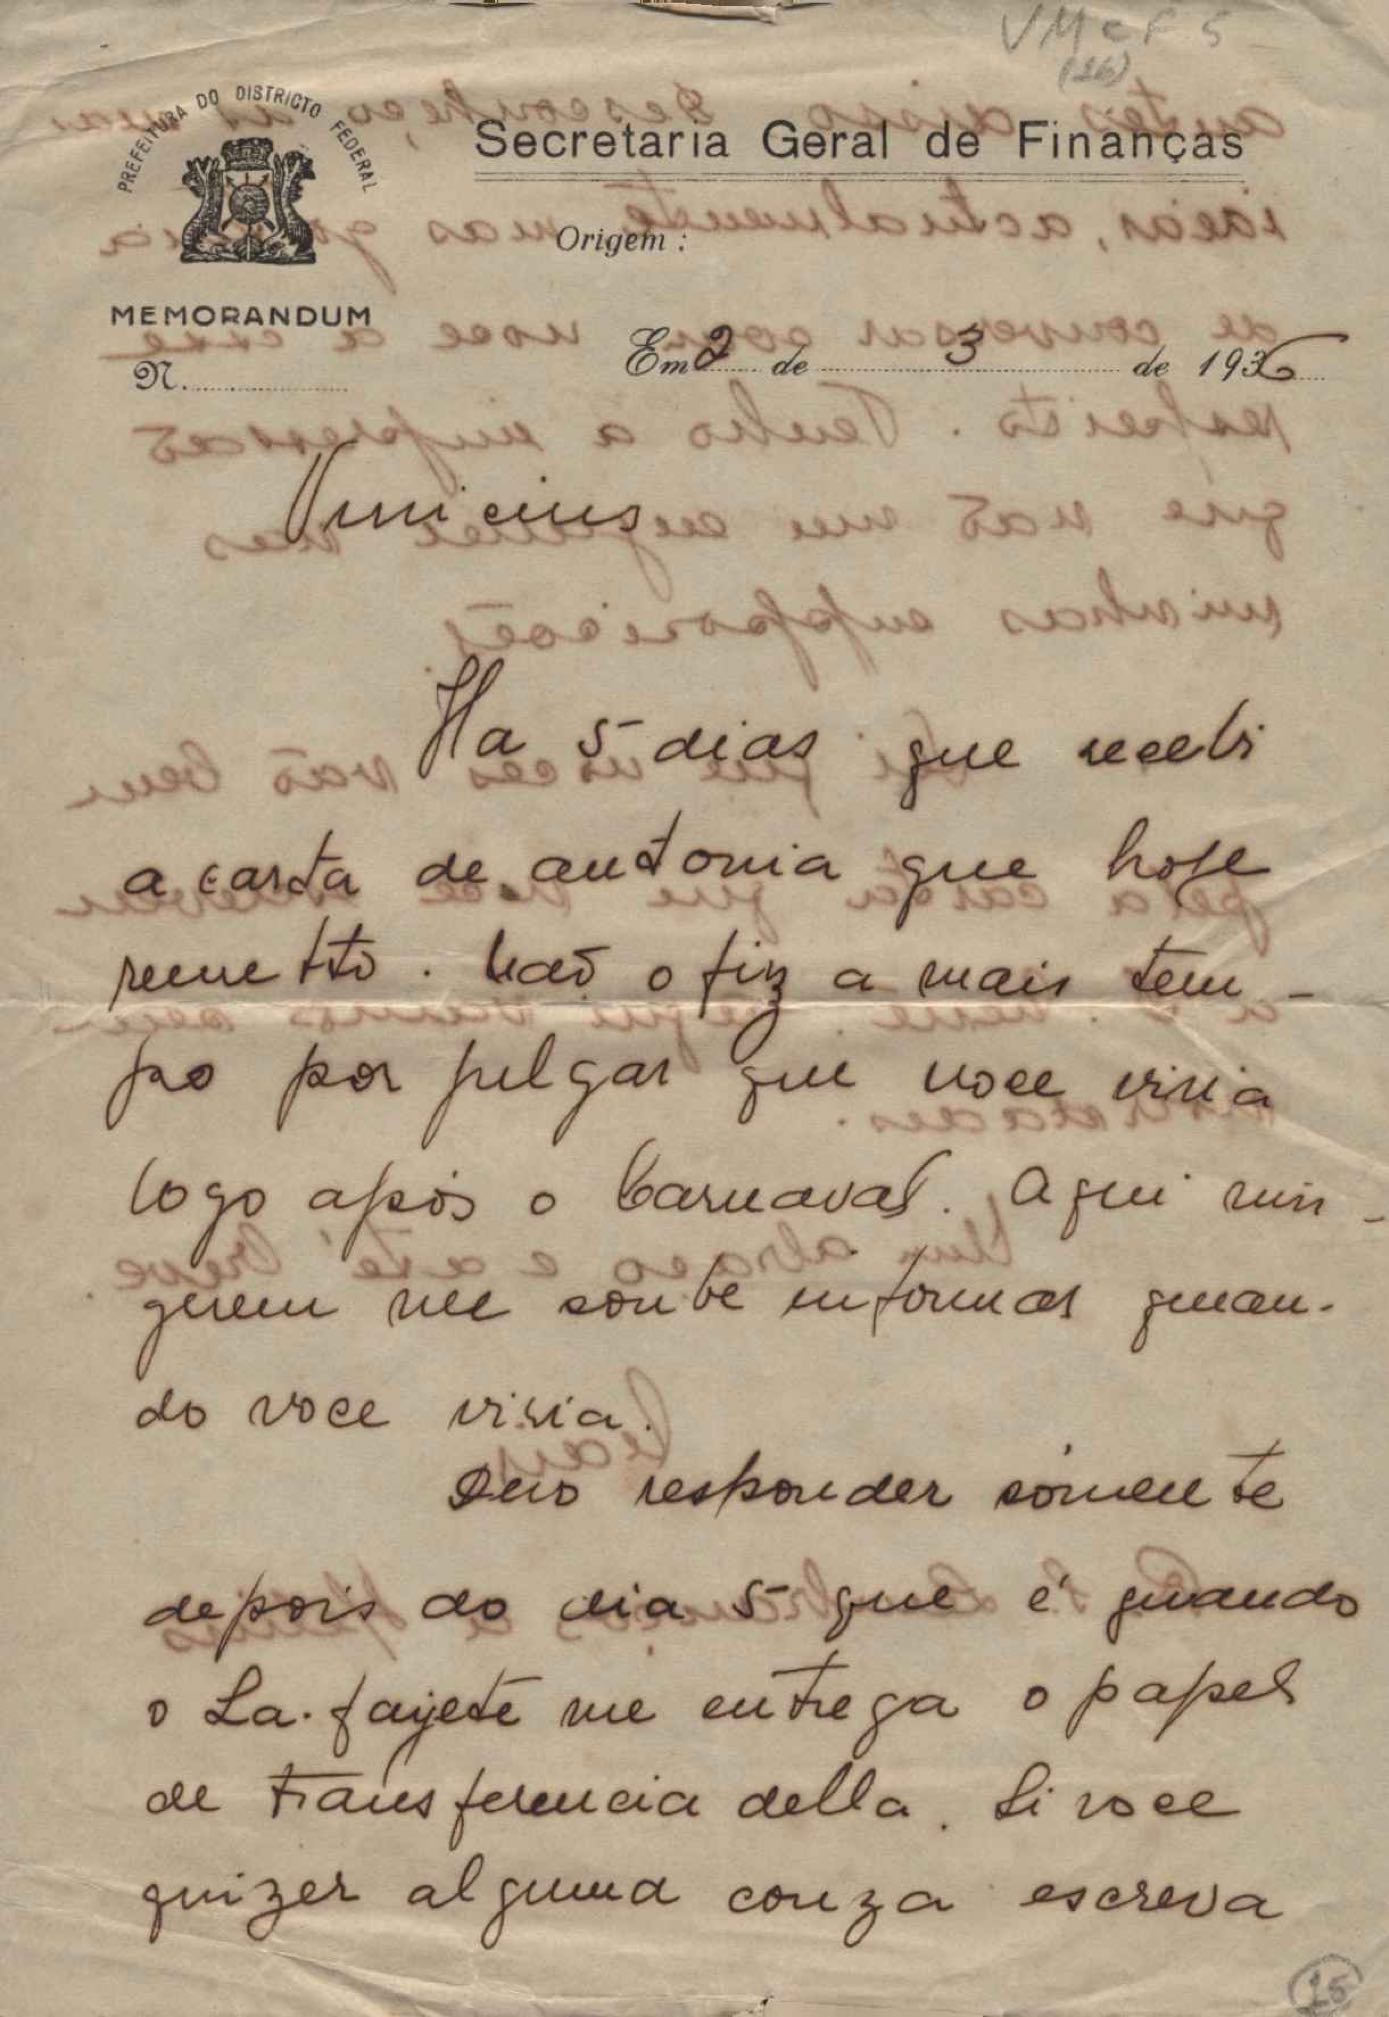 VMcF 5
(26)
PREFEITURA DO DISTRICTO FEDERAL
Secretaria Geral de Finanças
Origem :
MEMORANDUM
N.
Em 2 de 3 de 1936
Vinicius
Ha 5 dias que recebi
a carta de antonia que hoje
remetto. Não o fiz a mais tem-
po por julgar que voce viria
logo após o Carnaval. Aqui nin-
guem me soube informar quan-
do voce viria.
Devo responder sómente
depois do dia 5 que é quando
o La-fayete me entrega o papel
de transferencia della. Si voce
quizer alguma couza escreva
25